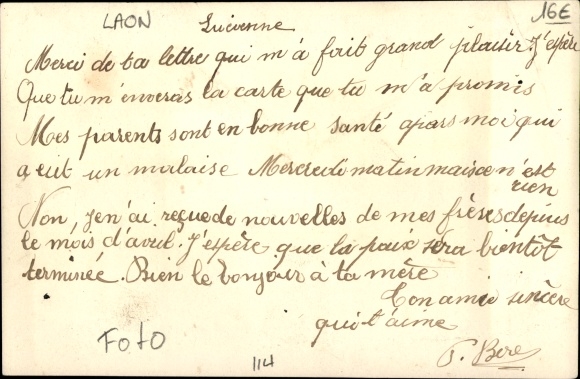 LAON Lucienne 16€
Merci de ta lettre qui m'a fait grand plaisir J'espère
Que tu m'enveras la carte que tu m'a promis
Mes parents sont en bonne santé apars moi qui
a eut un malaise Mercredi matin mais ce n'est
rien
Non, Je n'ai reçue de nouvelles de mes frères depuis
le mois d'avril. J'espère que la paix sera bientôt
terminée. Bien le bonjour à ta mère
Ton ami sincère
qui t'aime
FOTO
114